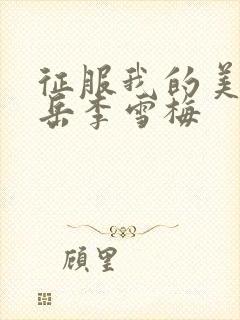 征服我的美
岳李雪梅
顾里